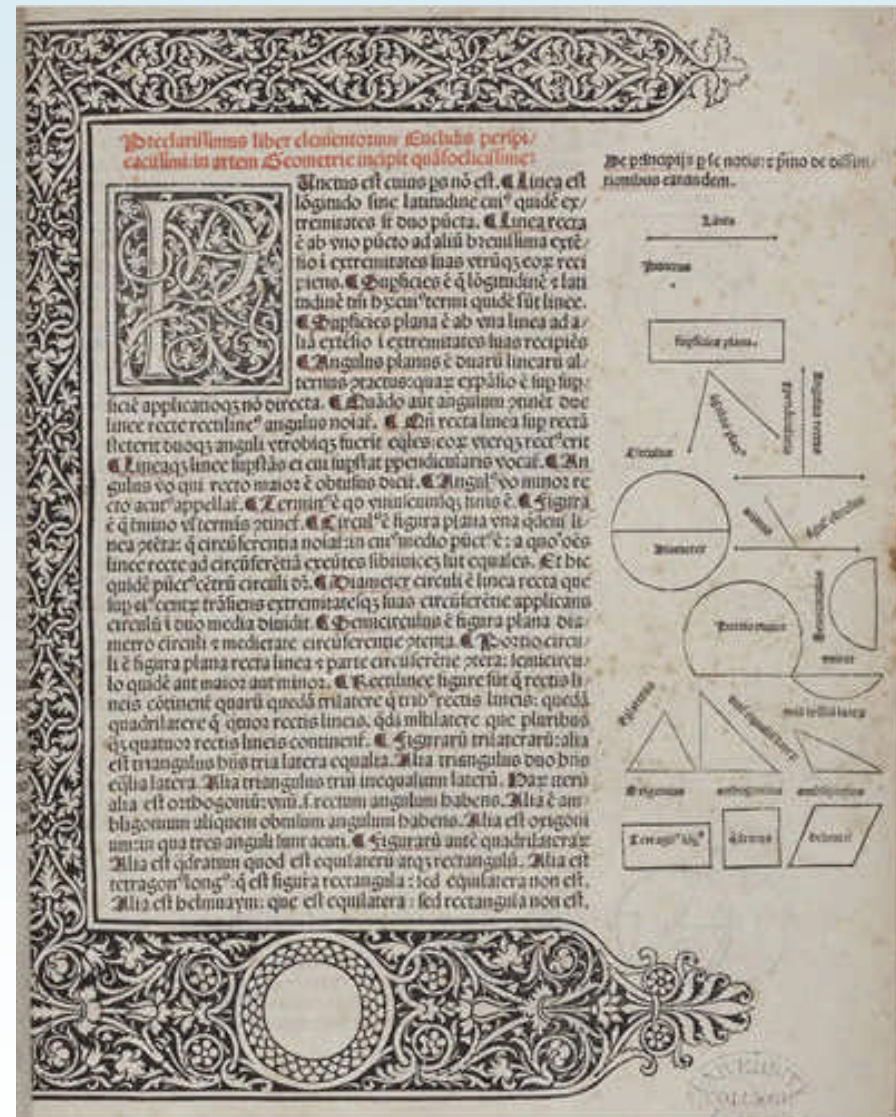 Preclarissimus liber elementorum Euclidis perspi/
cacissimi: in artem Geometrie incipit quãfoelicissime:
PUnctus est cuius ps nõ est. ¶ Linea est
lõgitudo sine latitudine cuiꝰ quidẽ ex/
tremitates sũt duo pũcta. ¶ Linea recta
ẽ ab vno pũcto ad aliũ breuissima extẽ/
sio ĩ extremitates suas vtrũqꝫ eoꝝ reci
piens. ¶ Supficies ẽ q̃ lõgitudinẽ ⁊ lati
tudinẽ tm̃ hꝫ: cuiꝰ termi quidẽ sũt linee.
¶ Supficies plana ẽ ab vna linea ad a/
liã extẽsio ĩ extremitates suas recipiẽs
¶ Angulus planus ẽ duarũ linearũ al/
ternus ꝯtactus: quaꝝ expãsio ẽ sup sup/
ficiẽ applicatioqꝫ nõ directa. ¶ Quãdo aut angulum ꝯtinẽt due
linee recte rectilineꝰ angulus noiat̃. ¶ Qñ recta linea sup rectã
steterit duoqꝫ anguli vtrobiqꝫ fuerit eq̃les: eoꝝ vterqꝫ rectꝰ erit
¶ Lineaqꝫ linee supstãs ei cui supstat ppendicularis vocat̃. ¶ An
gulus vo qui recto maior ẽ obtusus dicit̃. ¶ Angulꝰ vo minor re
cto acutꝰ appellat̃. ¶ Terminꝰ ẽ qd̃ vniuscuiusqꝫ finis ẽ. ¶ Figura
ẽ q̃ tmino vl̃ termis ꝯtinet̃. ¶ Circulꝰ ẽ figura plana vna qdem li/
nea ꝯtẽta: q̃ circũferentia noiat̃: in cuiꝰ medio pũctꝰ ẽ: a quo oẽs
linee recte ad circũferẽtiã exeũtes sibiinuicẽ sũt equales. Et hic
quidẽ pũctꝰ cẽtrũ circuli dr̃. ¶ Diameter circuli ẽ linea recta que
sup eiꝰ centꝝ trãsiens extremitatesqꝫ suas circũferẽtie applicans
circulũ ĩ duo media diuidit. ¶ Semicirculus ẽ figura plana dia/
metro circuli ⁊ medietate circũferentie ꝯtenta. ¶ Portio circu/
li ẽ figura plana recta linea ⁊ parte circũferẽtie ꝯtẽta: semicircu/
lo quidẽ aut maior aut minor. ¶ Rectilinee figure sũt q̃ rectis li/
neis cõtinent̃ quarũ quedã trilatere q̃ tribꝰ rectis lineis: quedã
quadrilatere q̃ qtuor rectis lineis. qdã mltilatere que pluribus
qꝫ quatuor rectis lineis continent̃. ¶ Figurarũ trilaterarũ: alia
est triangulus hñs tria latera equalia. Alia triangulus duo hñs
eq̃lia latera. Alia triangulus triũ inequalium laterũ. Haꝝ iterũ
alia est orthogoniũ: vnũ .s. rectum angulum habens. Alia ẽ am/
bligonium aliquem obtusum angulum habens. Alia est oxigoni
um: in qua tres anguli sunt acuti. ¶ Figurarũ autẽ quadrilateraꝝ
Alia est q̃dratum quod est equilaterũ atqꝫ rectangulũ. Alia est
tetragonꝰ longꝰ: q̃ est figura rectangula: sed equilatera non est.
Alia est helmuaym: que est equilatera: sed rectangula non est.
De principijs p se notis: ⁊ pm̃o de diffini/
tionibus earundem.
Linea
Punctus
Supficies plana.
Circulus
Diameter
Portio maior
minor
Oxigonius
orthogonius
ambligonius
Tetragonꝰ lõgꝰ
q̃dratus
helmuaym